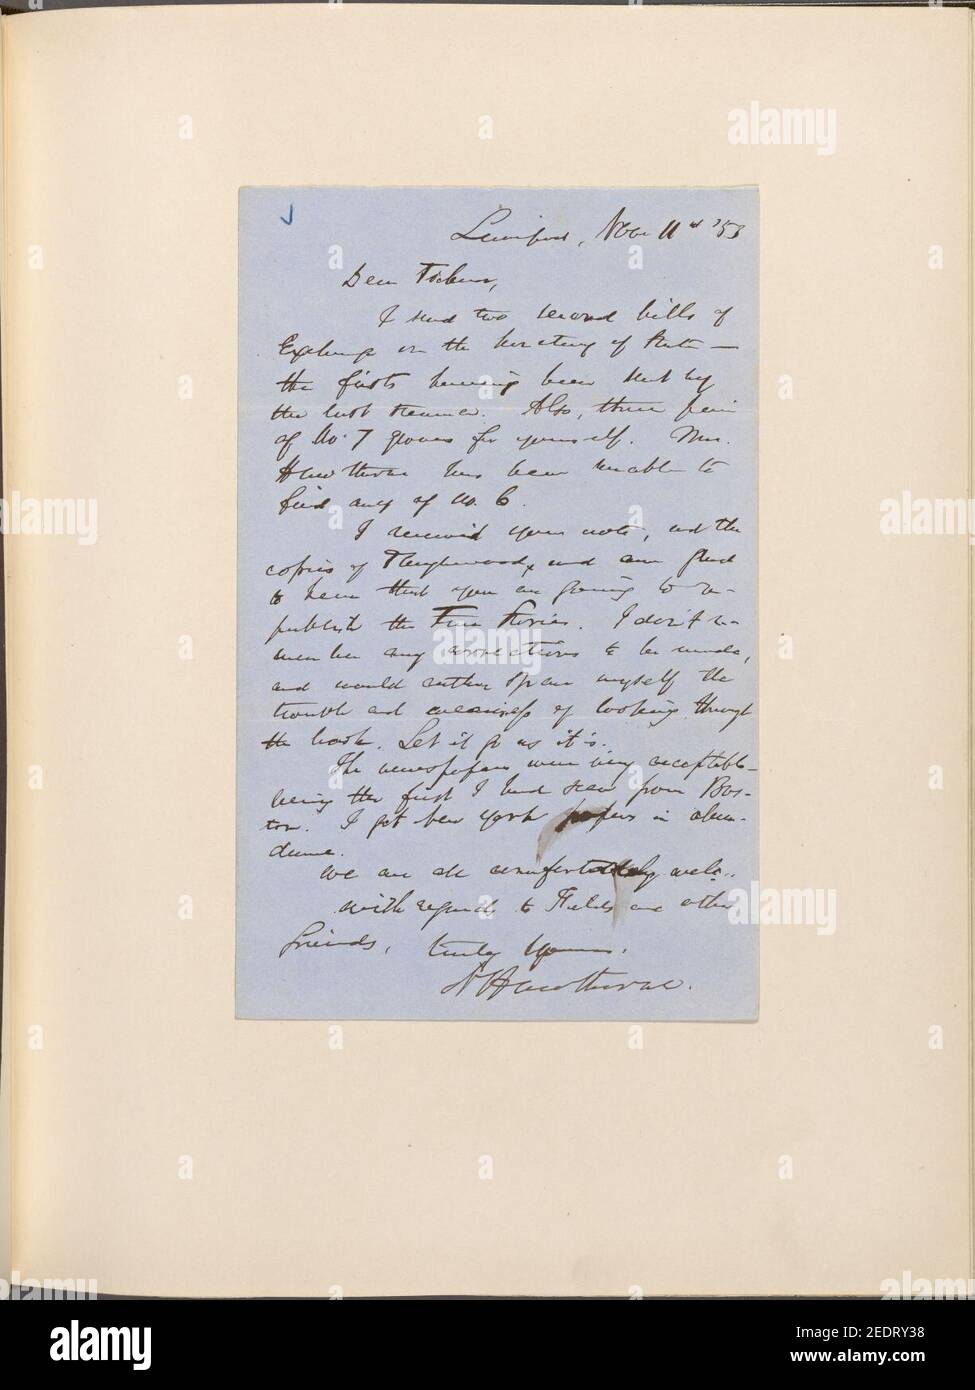 Liverpool, Nov 11th '53
Dear Ticknor,
I send two second bills of
Exchange on the Secretary of State—
the firsts having been sent by
the last steamer. Also, three pair
of No. 7 gloves for yourself. Mrs.
Hawthorne has been unable to
find any of No. 6.
I received your note, and the
copies of Tanglewood, and am glad
to hear that you are going to re-
publish the True Stories. I don't re-
member any corrections to be made,
and would rather spare myself the
trouble and weariness of looking through
the book. Let it go as it is.
The newspapers were very acceptable—
being the first I had seen from Bos-
ton. I get New York papers in abun-
dance.
We are all comfortably well.
With regards to Fields and other
friends, truly Yours.
N Hawthorne.
alamy
Image ID: 2EDRY38
www.alamy.com